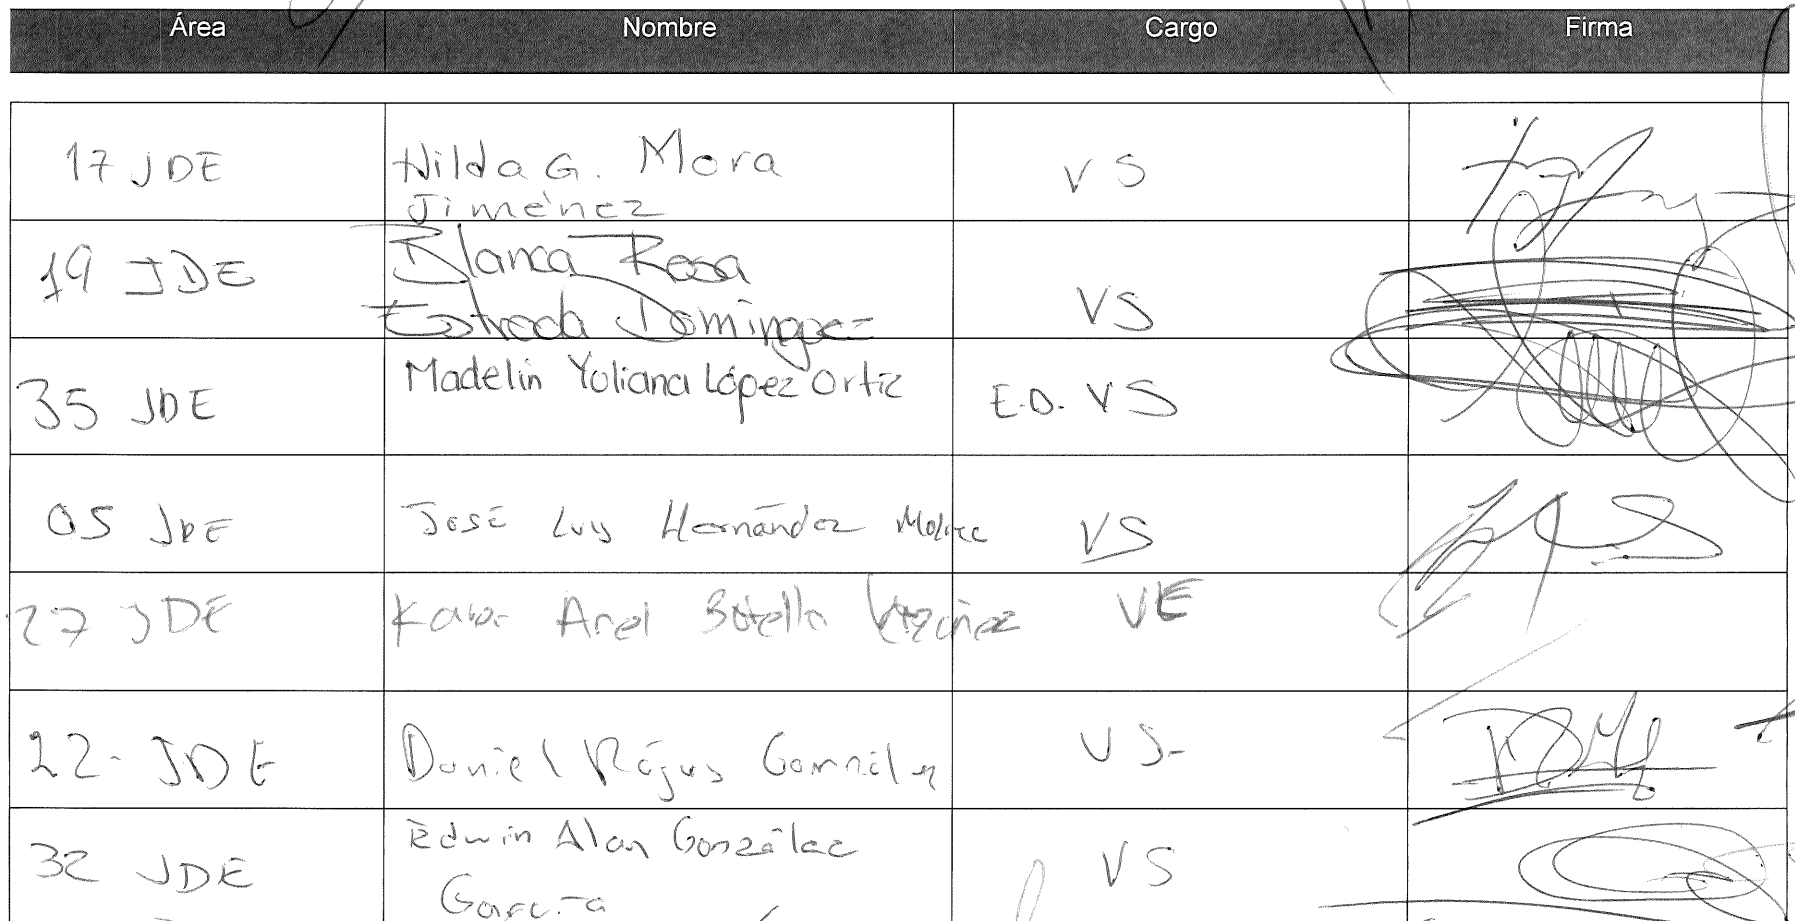 Área Nombre Cargo Firma
17 JDE Hilda G. Mora VS
Jiménez
19 JDE Blanca Rosa VS
Estrada Domínguez
35 JDE Madelin Yoliana López Ortiz E.D. VS
05 JDE José Luis Hernández VS
27 JDE Anel Botello VE
22- JDE Daniel González VS-
32 JDE Edwin Alan González VS
García